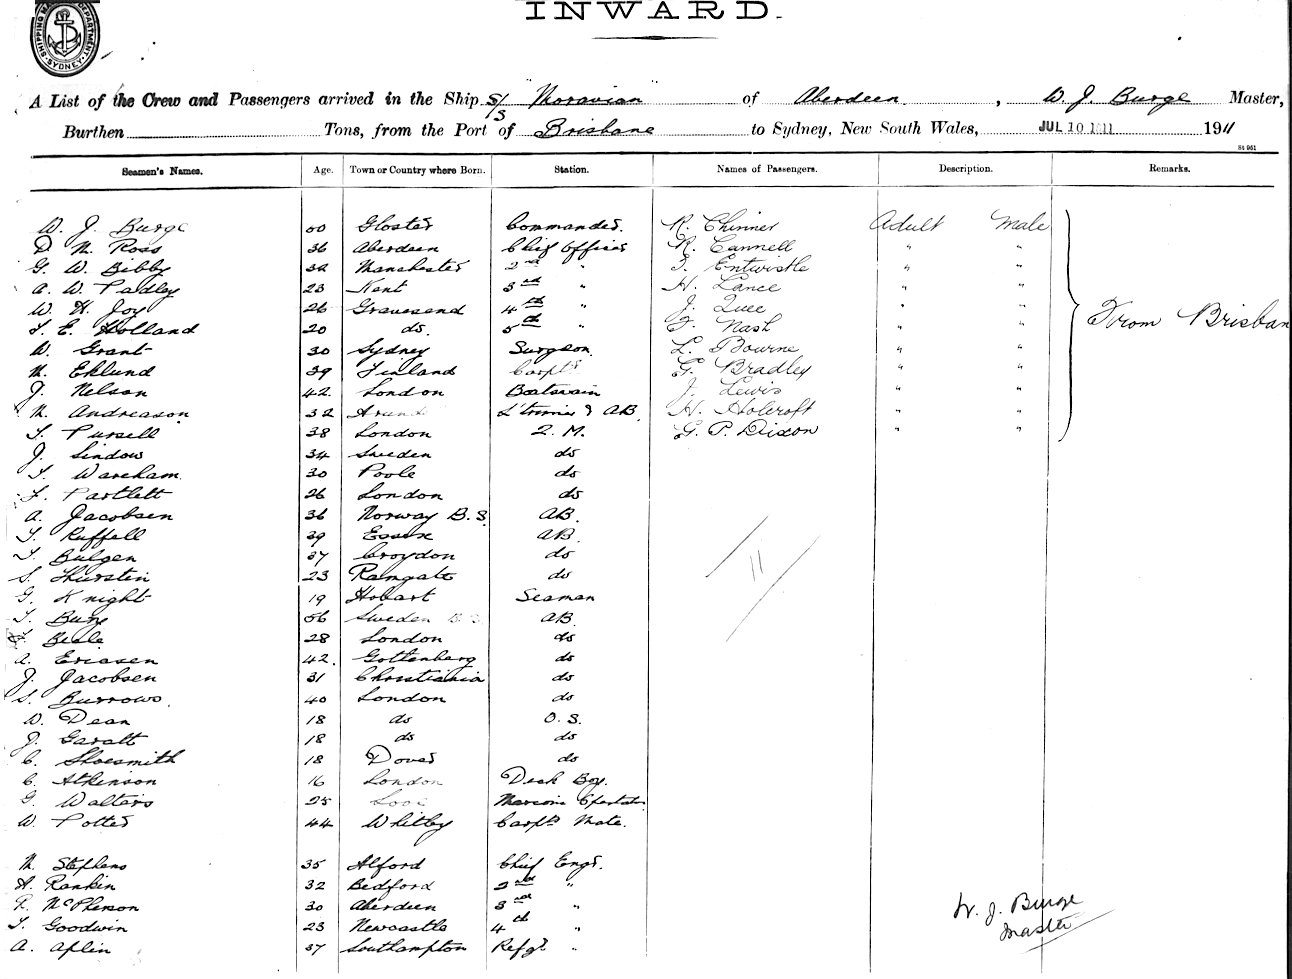 SHIPPING MASTER'S DEPARTMENT. SYDNEY.
INWARD.
A List of the Crew and Passengers arrived in the Ship S/S Moravian of Aberdeen, W. J. Burge Master,
Burthen Tons, from the Port of Brisbane to Sydney, New South Wales, JUL 10 1911 1911
St 961
Seamen's Names. Age. Town or Country where Born. Station. Names of Passengers. Description. Remarks.
W. J. Burge Gloster Commander. R. Chinner Adult Male
D. M. Ross 36 Aberdeen Chief Officer R. Cannell " "
G. W. Bibby 32 Manchester 2nd " T. Entwistle " "
A. W. Padley 23 Kent 3rd " H. Lance " "
W. H. Joy 26 Gravesend 4th " J. " "
T. E. Holland 20 do. 5th " F. Nash " " From Brisban
W. Grant 30 Sydney Surgeon. L. Bourne " "
M. Eklund 39 Finland Carptr G. Bradley " "
J. Nelson 42 London Boatswain J. Lewis " "
N. Andreason 32 & AB. H. Holcroft " "
T. Pursell 38 London Q. M. G. P. Dixon " "
J. Lindow 34 Sweden do
T. Wareham 30 Poole do
F. Partlett 26 London do
A. Jacobsen 36 Norway B.S. AB.
T. Ruffell 39 Essex AB.
T. Bulgen 37 Croydon do
S. Thurstin 23 Ramgate do
G. Knight 19 Hobart Seaman
T. 56 Sweden B.S. AB.
Beale 28 London do
A. Ericsen 42. Gottenberg do
J. Jacobsen 31 Christiania do
S. Burrows. 40 London do
W. Dean 18 do O. S.
J. Garatt 18 do do
C. Shoesmith 18 Dover do
C. Atkinson 16 London Deck Boy.
G. Walters 25 Looe Marconi Operator
W. Potter 44 Whitby Carpts Mate.
M. Stephens 35 Alford Chief Engr.
A. Rankin 32 Bedford 2nd "
R. McPherson 30 Aberdeen 3rd "
T. Goodwin 23 Newcastle 4th "
A. Aplin 37 Southampton Refgr "
11
W. J. Burge
Master